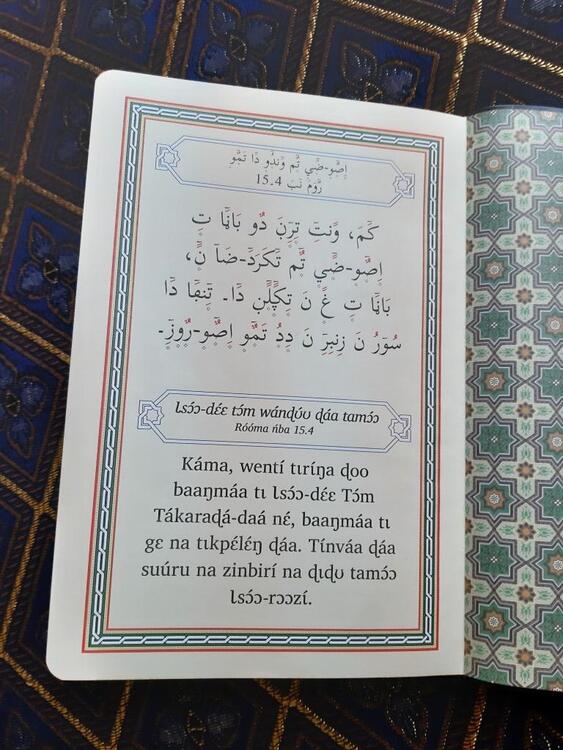 اِصٗوْ-ضٜىٰ تٗمْ وَندُو دَا تَمٗوْ
رٗومْ نْبَ 15.4
كَمَ، وٜنتِ تِرِنَ دُو بَانْمَا تِ
اِصٗوْ-ضٜىٰ تٗمْ تَكَرَدَ-ضَا نٜ،
بَانْمَا تِ غٜ نَ تِكپٜلٜنْ دَا. تِنڢَا دَا
سُورُ نَ زِنبِرِ نَ دِدُ تَمٗوْ اِصٗوْ-رٗوزِ.
Ɩsɔ́ɔ-dɛ́ɛ tɔ́m wánɖʊ́ʊ ɖáa tamɔ́ɔ
Róóma ńba 15.4
Káma, wentí tɩríŋa ɖoo
baaŋmáa tɩ Ɩsɔ́ɔ-dɛ́ɛ Tɔ́m
Tákaraɖá-daá nɛ́, baaŋmáa tɩ
gɛ na tɩkpɛ́lɛ́ŋ ɖáa. Tínváa ɖáa
suúru na zinbirí na ɖɩɖʊ tamɔ́ɔ
Ɩsɔ́ɔ-rɔɔzɩ́.